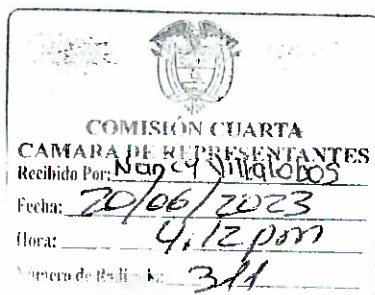 COMISIÓN CUARTA
CAMARA DE REPRESENTANTES
Recibido Por: Nancy Villalobos
Fecha: 20/06/2023
Hora: 4:12 pm
Número de Radicado: 311